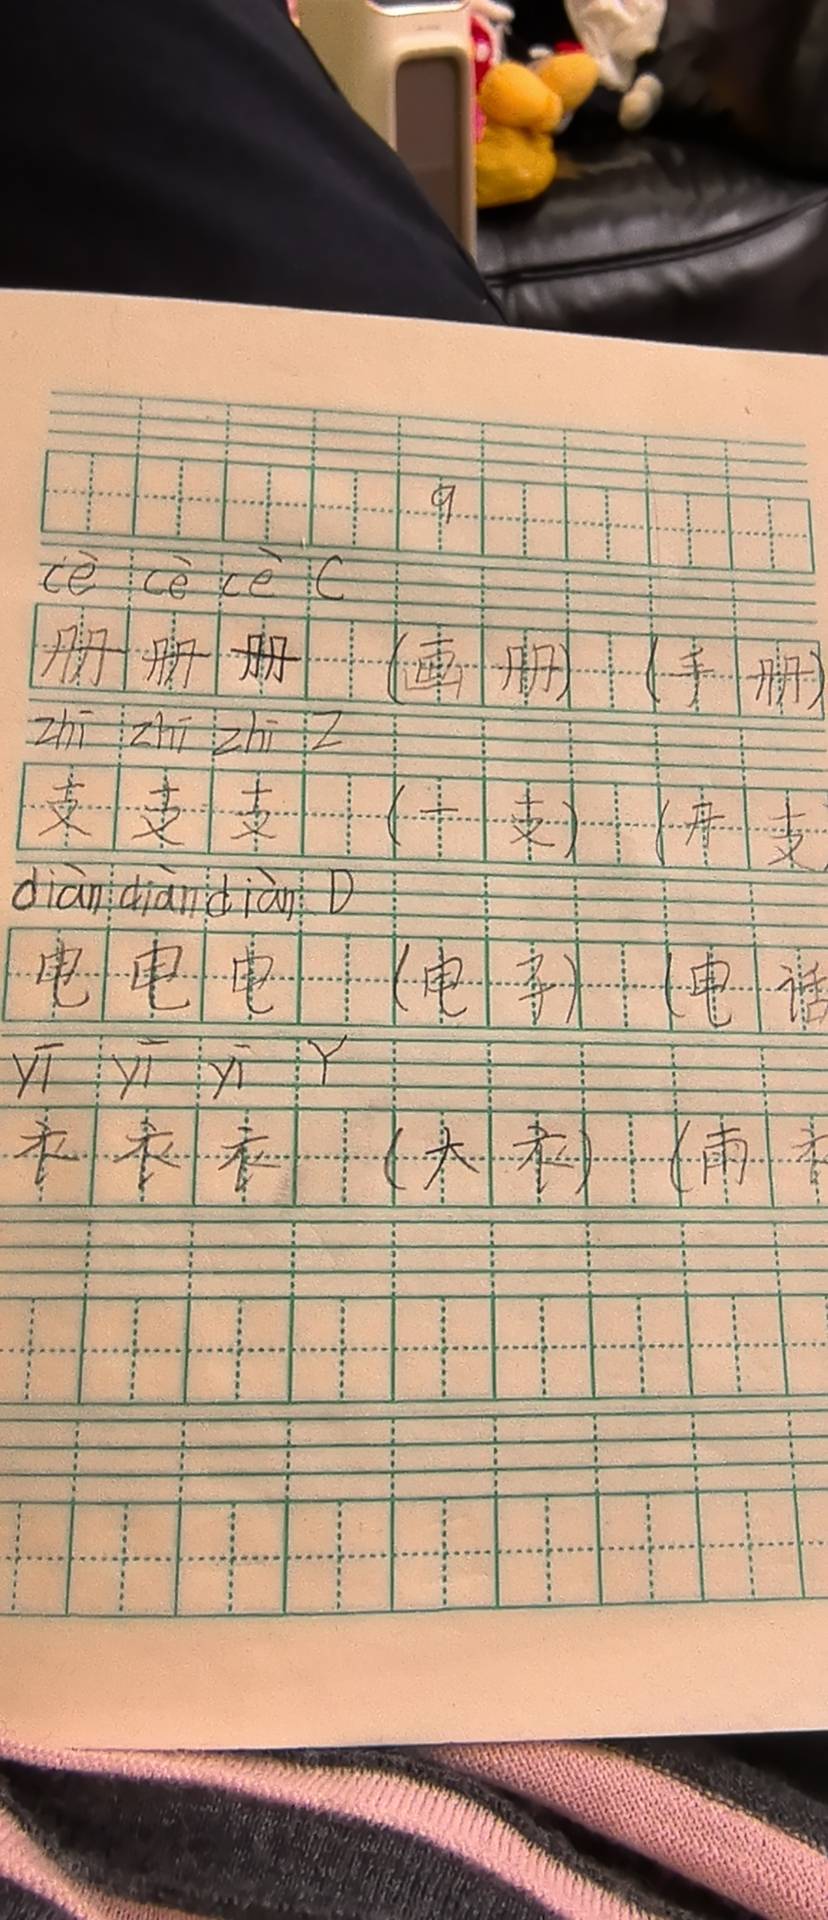 9
cè cè cè C
册 册 册 (画册) (手册)
zhī zhī zhī Z
支 支 支 (一支) (开支)
diàn diàn diàn D
电 电 电 (电子) (电话
yī yī yī Y
衣 衣 衣 (大衣) (雨衣